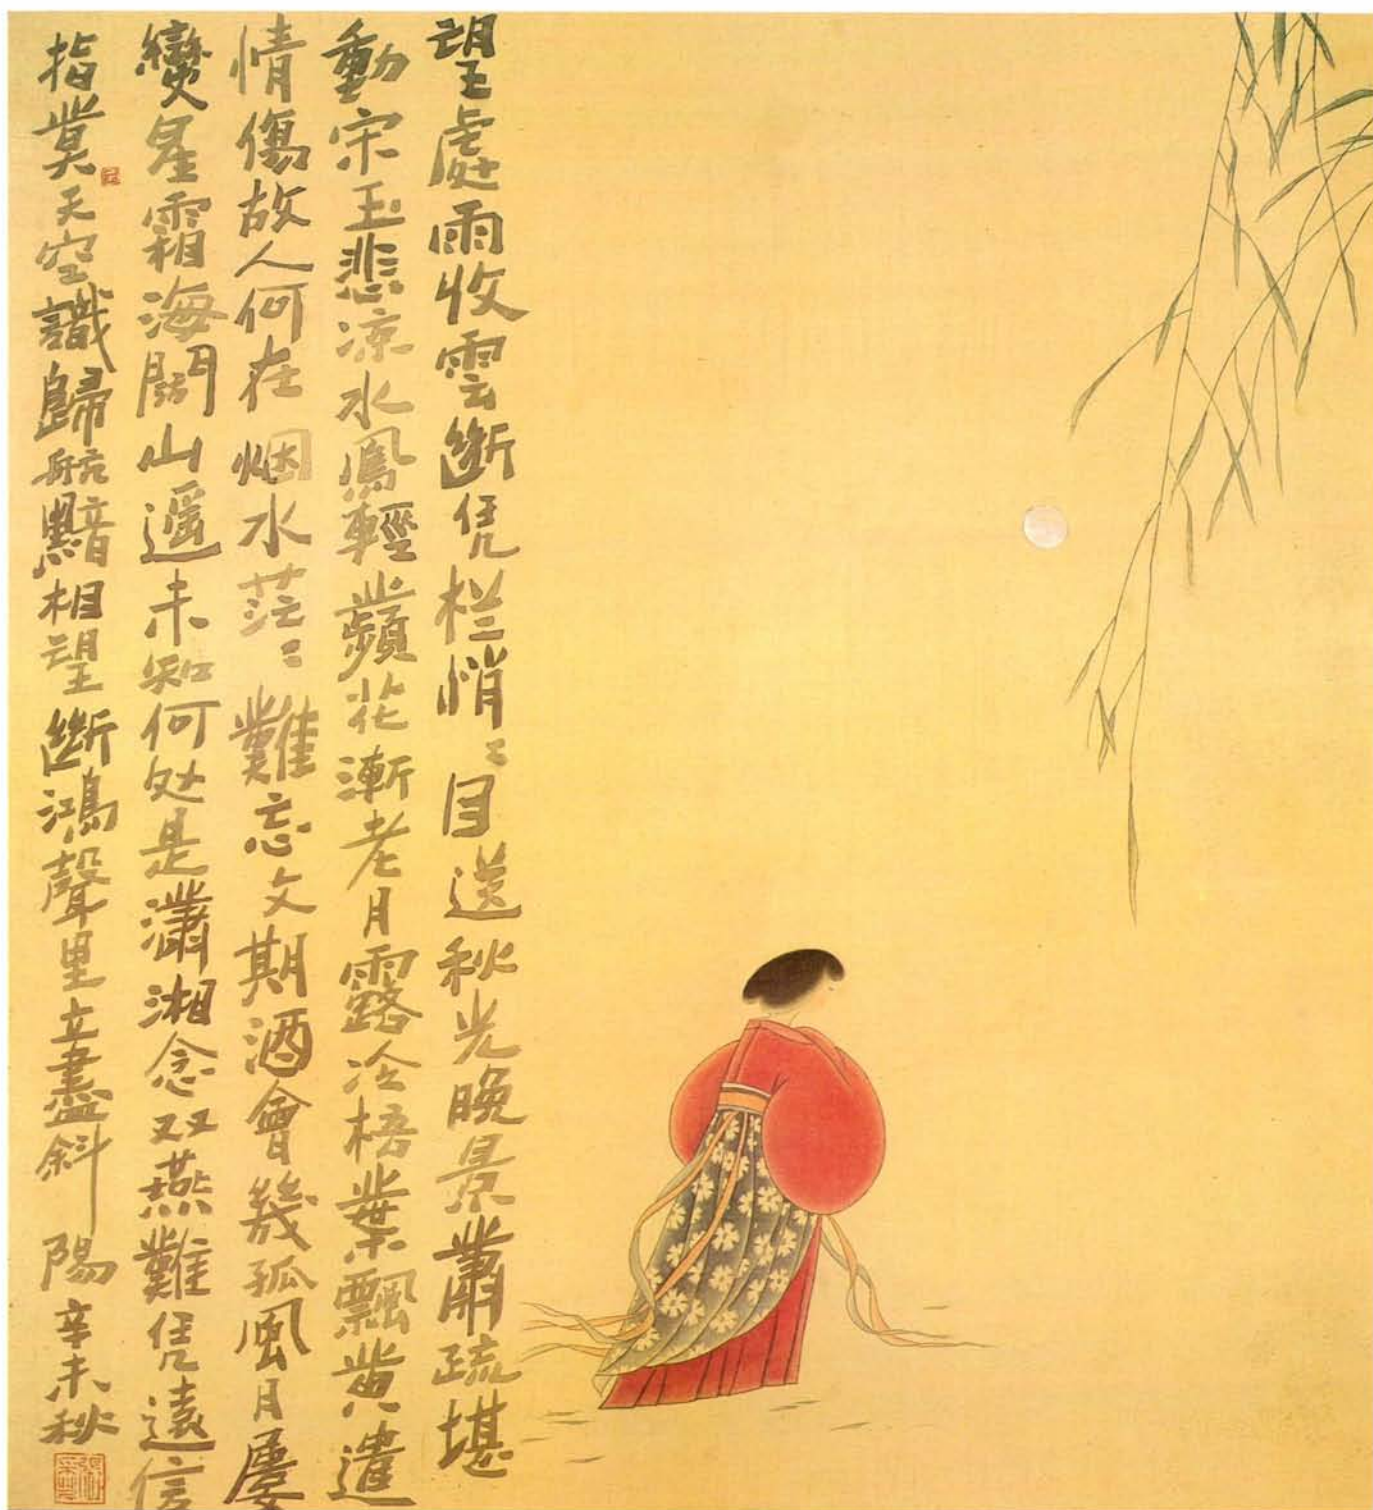 望處雨收雲斷凭栏悄〻目送秋光晚景蕭疏堪
動宋玉悲凉水風輕蘋花漸老月露冷梧葉飄黄遣
情傷故人何在烟水茫〻難忘文期酒會幾孤風月屡
變星霜海闊山遥未知何处是瀟湘念双燕難凭遠信
指莫天空識歸航黯相望斷鴻聲里立盡斜陽 辛未秋